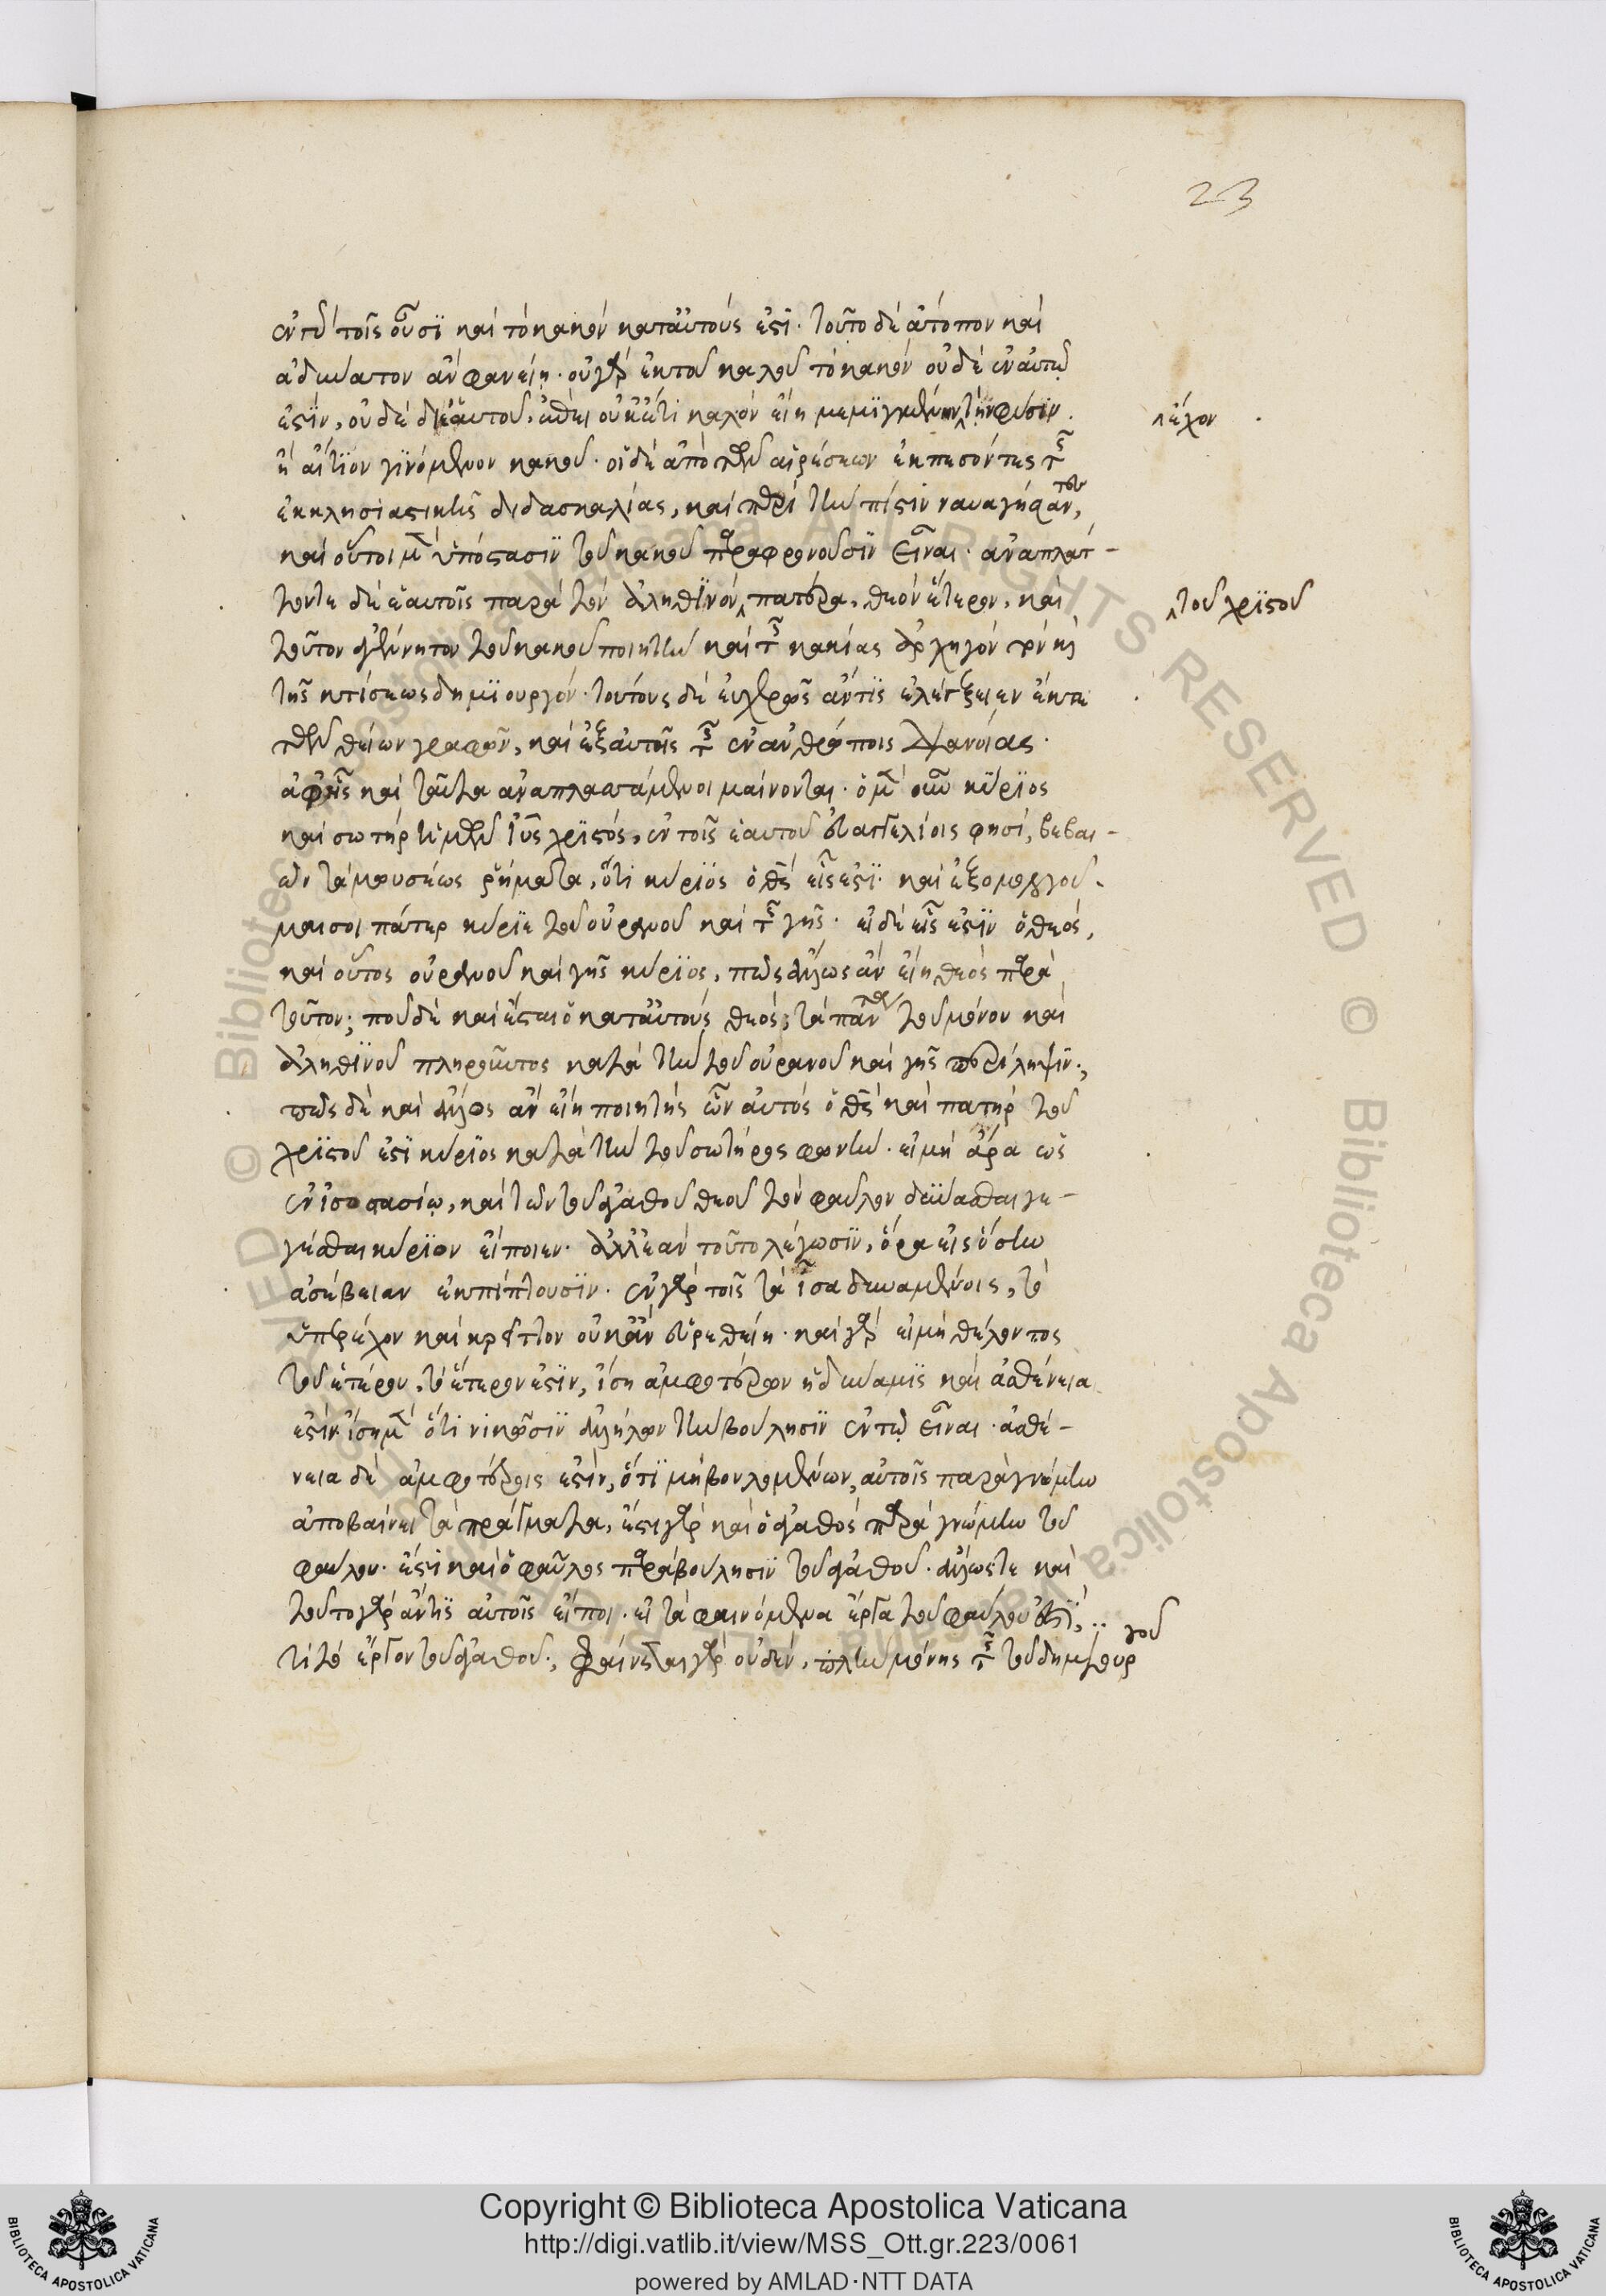 ἐν τούτοις οὖσϊ καὶ τὸ κακὸν κατ' αὐτούς ἐστι· τοῦτο δὲ ἄτοπον καὶ
ἀδύνατον ἂν φανείη· οὐ γὰρ ἐκ τοῦ καλοῦ τὸ κακὸν οὐδὲ ἐν αὐτῷ
ἐστϊν, οὐδὲ δι' ἑαυτοῦ, ἐπεὶ οὐκέτι καλὸν εἴη μεμϊγμένην τὴν φύσϊν.
ἔχον
ἢ αἴτϊον γϊνόμενον κακοῦ· οἱ δὲ ἀπὸ τῶν αἱρέσεων ἐκπεσόντες τῆς
ἐκκλησιαστικῆς διδασκαλίας, καὶ περὶ τὴν πίστιν ναυαγήσαντες,
καὶ οὗτοι μὲν ὑπόστασϊν τοῦ κακοῦ παραφρονοῦσϊν εἶναι· ἀναπλατ-
τονται δὲ ἑαυτοῖς παρὰ τὸν ἀληθϊνόν, πατέρα, θεὸν ἕτερον, καὶ
τοῦ χρϊστοῦ
τοῦτον ἀγένητον τοῦ κακοῦ ποιητὴν καὶ τῆς κακίας ἀρχηγόν τὸν καὶ
τῆς κτίσεως δημϊουργόν· τούτους δὲ εὐχερῶς ἄν τϊς ἐλέγξειεν ἔκ τε
τῶν θείων γραφῶν, καὶ ἐξ αὐτῆς τῆς ἐν ἀνθρώποις διανοίας·
ἀφ' ἧς καὶ ταῦτα ἀναπλασάμενοι μαίνονται· ὁ μὲν οὖν κύρϊος
καὶ σωτὴρ ἡμῶν ἰησοῦς χρϊστός, ἐν τοῖς ἑαυτοῦ εὐαγγελίοις φησί, βεβαι-
ῶν τὰ μωυσέως ῥήματα, ὅτι κύρϊος ὁ θεὸς εἷς ἐστϊ· καὶ ἐξομολογοῦ-
μαι σοι πάτερ κύρϊε τοῦ οὐρανοῦ καὶ τῆς γῆς· εἰ δὲ εἷς ἐστϊν ὁ θεός,
καὶ οὗτος οὐρανοῦ καὶ γῆς κύρϊος, πῶς ἄλλως ἂν εἴη θεὸς παρὰ
τοῦτον; ποῦ δὲ καὶ ἔσται ὁ κατ' αὐτοὺς θεός; τὰ πάντα τοῦ μόνου καὶ
ἀληθϊνοῦ πληροῦντος κατὰ τὴν τοῦ οὐρανοῦ καὶ γῆς περίληψϊν;
πῶς δὲ καὶ ἄλλος ἂν εἴη ποιητής ὧν αὐτὸς ὁ θεὸς καὶ πατὴρ τοῦ
χρϊστοῦ ἐστϊ κύρϊος κατὰ τὴν τοῦ σωτῆρος φωνήν· εἰ μὴ ἄρα ὡς
ἐν ἰσοστασίῳ, καὶ τῶν τοῦ ἀγαθοῦ θεοῦ τὸν φαῦλον δύνασθαι γε-
γέσθαι κύρϊον εἴποιεν· ἀλλ' ἐὰν τοῦτο λέγωσϊν, ὅρα εἰς ὅσην
ἀσέβειαν ἐκπίπτουσϊν· ἐν γὰρ τοῖς τὰ ἴσα δυναμένοις, τὸ
ὑπερέχον καὶ κρεῖττον οὐκ ἂν εὑρεθείη· καὶ γὰρ εἰ μὴ θέλοντος
τοῦ ἑτέρου, τὸ ἕτερον ἐστϊν, ἴση ἀμφοτέρων ἡ δύναμϊς καὶ ἀσθένεια
ἐστίν· ἴση μὲν ὅτι νικῶσϊν ἀλλήλων τὴν βούλησϊν ἐν τῷ εἶναι· ἀσθέ-
νεια δὲ ἀμφοτέροις ἐστίν, ὅτϊ μὴ βουλομένων, αὐτοῖς παρὰ γνώμην
ἀποβαίνει τὰ πράγματα, ἔστι γὰρ καὶ ὁ ἀγαθὸς παρὰ γνώμην τοῦ
φαύλου· ἔστι καὶ ὁ φαῦλος παρὰ βούλησϊν τοῦ ἀγαθοῦ. ἄλλως τε καὶ
τοῦτο γὰρ ἄν τϊς αὐτοῖς εἴποι· εἰ τὰ φαινόμενα ἔργα τοῦ φαύλου ἐστϊ,
τί τὸ ἔργον τοῦ ἀγαθοῦ; φαίνεται γὰρ οὐδέν, πλὴν μόνης τῆς τοῦ δημϊουρ
γοῦ
23
Copyright © Biblioteca Apostolica Vaticana
http://digi.vatlib.it/view/MSS_Ott.gr.223/0061
powered by AMLAD·NTT DATA